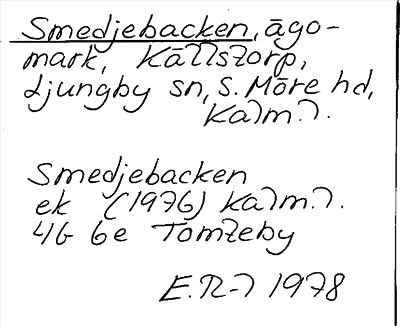 Smedjebacken, ägo-
mark, Källstorp,
Ljungby sn, S. Möre hd,
Kalm.l.
Smedjebacken
ek (1976) Kalm.l.
4G 6e Tomteby
E.R-l 1978